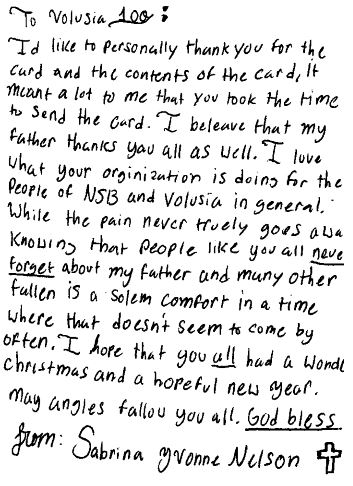 To Volusia 100:
I'd like to personally thank you for the
card and the contents of the card, it
meant a lot to me that you took the time
to send the card. I beleave that my
father thanks you all as well. I love
what your orginization is doing for the
People of NSB and Volusia in general.
While the pain never truely goes awa
Knowing that People like you all neve
forget about my father and many other
fallen is a solem comfort in a time
where that doesn't seem to come by
often. I hope that you all had a wonde
christmas and a hopeful new year.
may angles fallou you all. God bless
from: Sabrina Yvonne Nelson